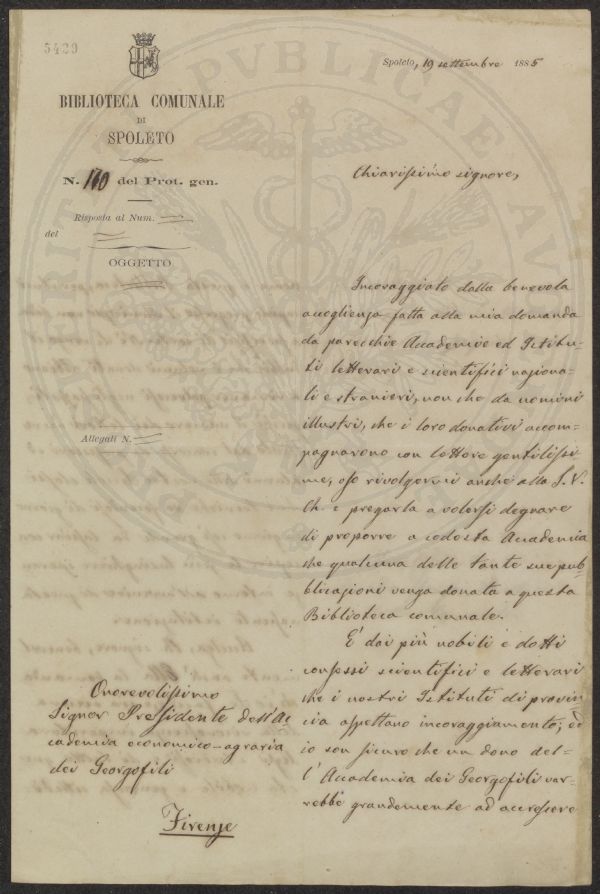 5429
BIBLIOTECA COMUNALE
DI
SPOLETO
N. 160 del Prot. gen.
Risposta al Num.
del
OGGETTO
Allegati N.
Spoleto, 19 settembre 1885
Chiarissimo signore,
Incoraggiato dalla benevola
accoglienza fatta alla mia domanda
da parecchie Accademie ed Istitu-
ti letterari e scientifici naziona-
li e stranieri, non che da uomini
illustri, che i loro donativi accom-
pagnarono con lettere gentilissi-
me, oso rivolgermi anche alla S. V.
Ch. e pregarla a volersi degnare
di proporre a codesta Accademia
che qualcuna delle tante sue pub-
blicazioni venga donata a questa
Biblioteca comunale.
È dai più nobili e dotti
consessi scientifici e letterari
che i nostri Istituti di provin-
cia aspettano incoraggiamento; ed
io son sicuro che un dono del-
l'Accademia dei Georgofili var-
rebbe grandemente ad accrescere
Onorevolissimo
Signor Presidente dell'Ac-
cademia economico-agraria
dei Georgofili
Firenze